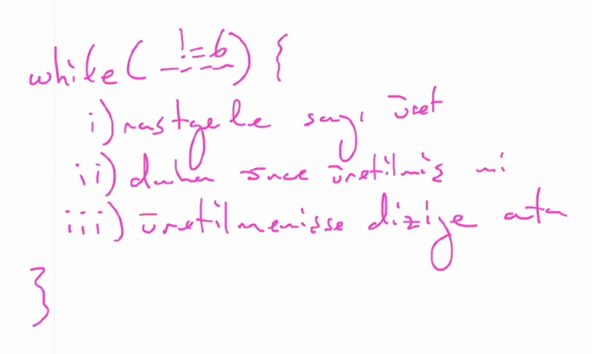 while( !=6) {
i) rastgele sayı üret
ii) daha önce üretilmiş mi
iii) üretilmemişse diziye ata
}